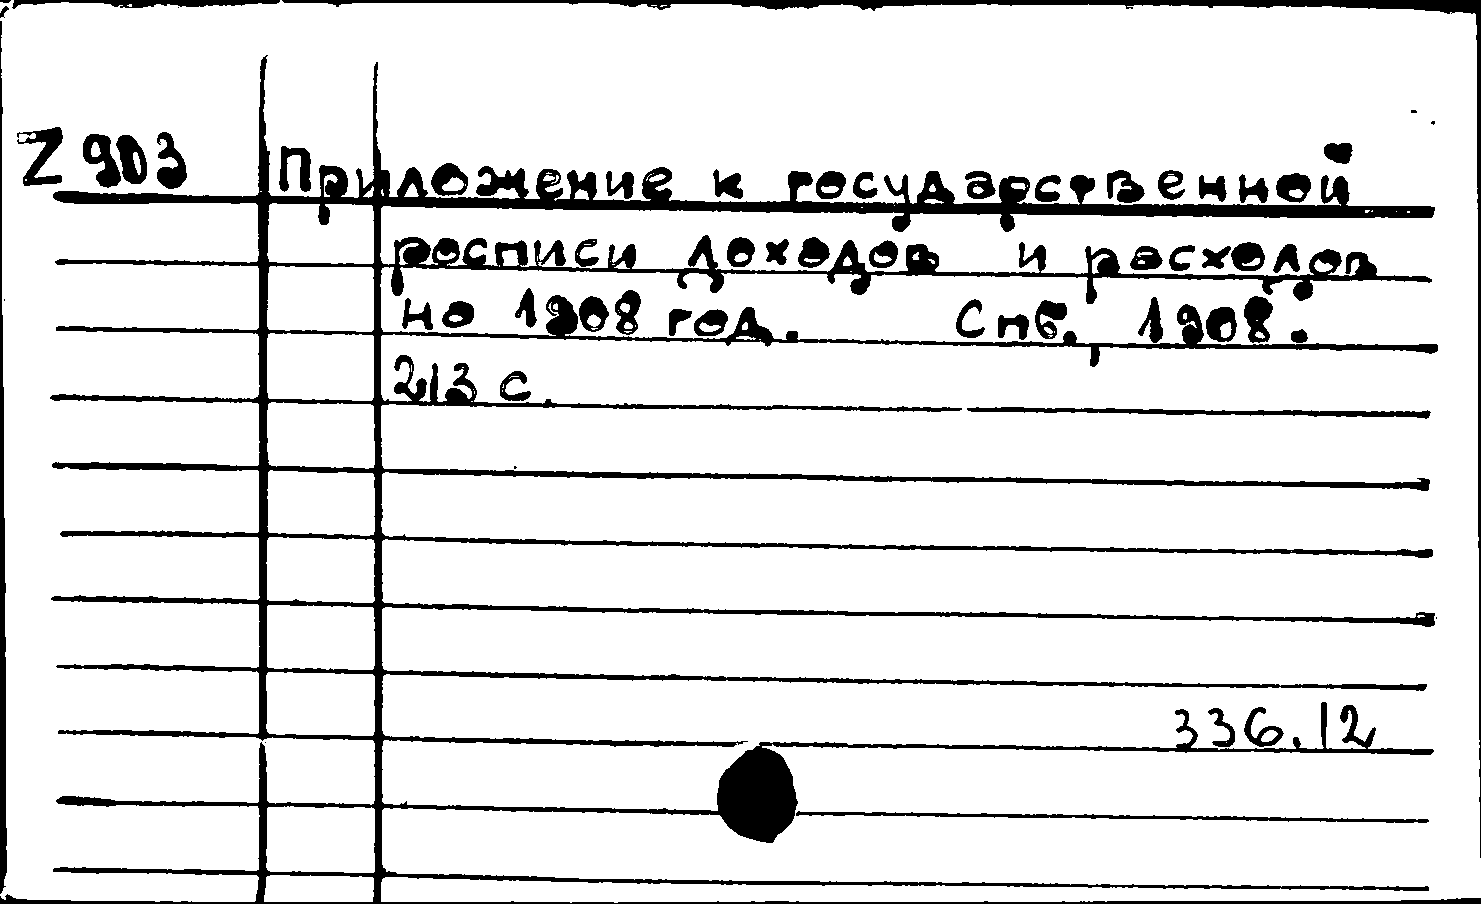 Z 903 Приложение к государственной
росписи доходов и расходов
на 1908 год. Спб., 1908.
213 с.
336.12